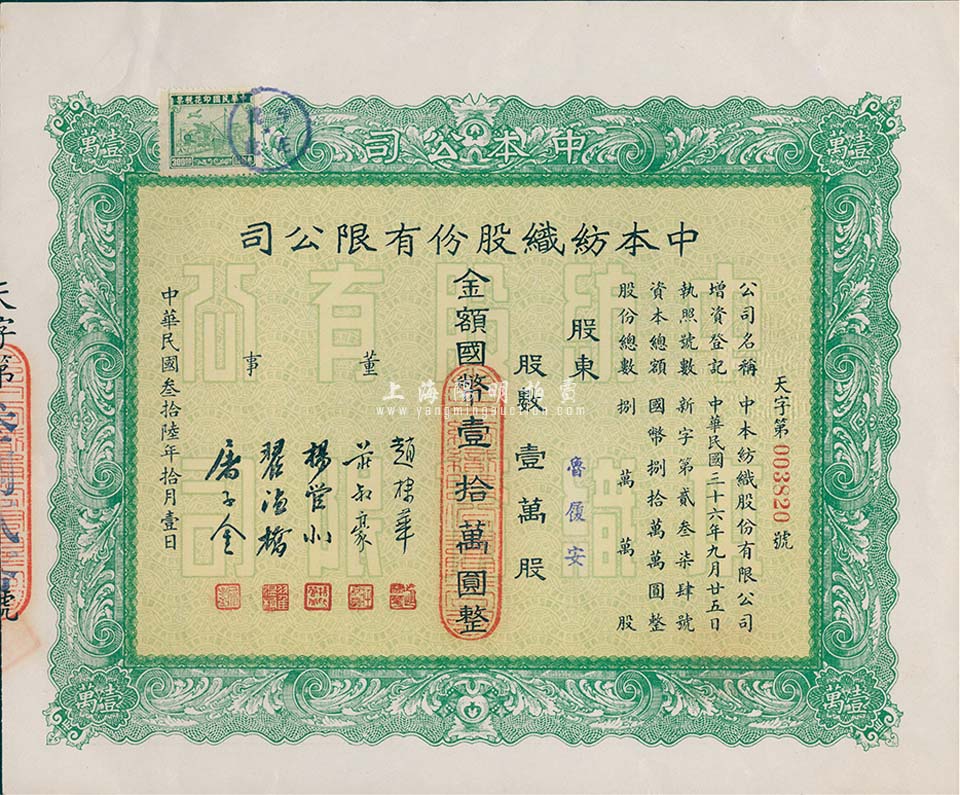 中華民國印花稅票
中本公司
壹萬
壹萬
中本紡織股份有限公司
天字第003820號
公司名稱 中本紡織股份有限公司
增資登記 中華民國三十六年九月廿五日
執照號數 新字第貳叁柒肆號
資本總額 國幣捌拾萬萬圓整
股份總數 捌萬萬股
股東 魯履安
股數 壹萬股
金額國幣壹拾萬圓整
董事
趙棣華
莊叔豪
楊管北
翟溫橋
中華民國叁拾陸年拾月壹日
天字第
號
上海陽明拍賣
www.yangmingauction.com
壹萬
壹萬